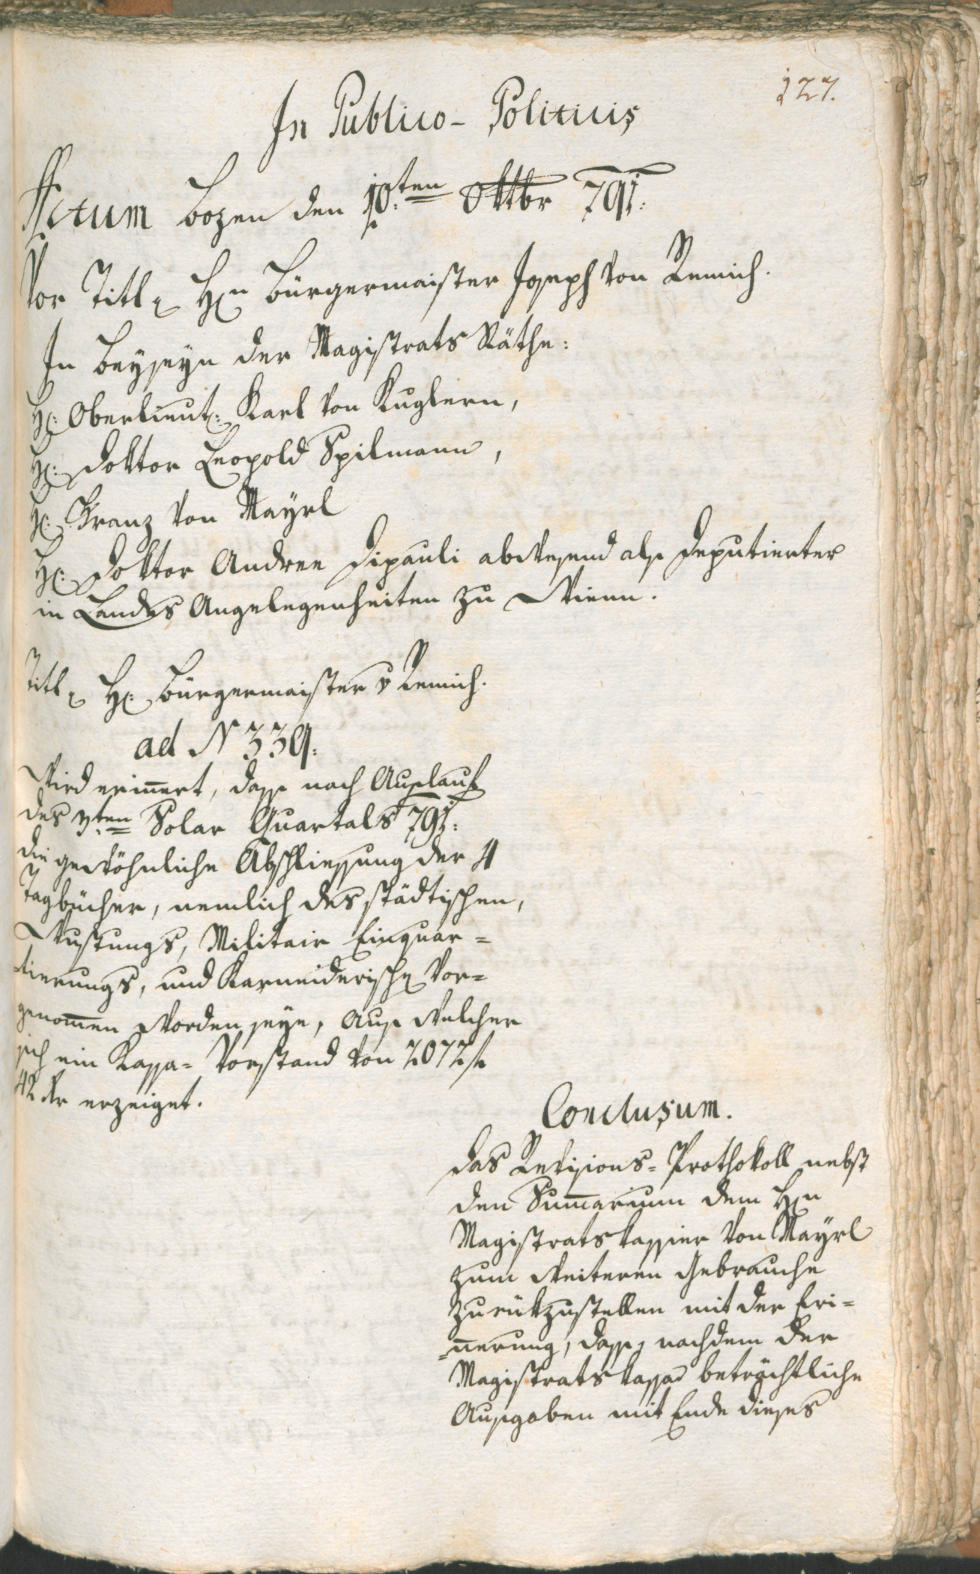 127.
In Publico-Politicis
Actum Bozen den 10.ten Oktbr 791.
Vor Titl. Hrn Bürgermaister Joseph von Remich.
In Beyseyn der Magistrats Räthe:
H: Oberlieut: Karl von Kuglern,
H: Doktor Leopold Spilmann,
H: Franz von Mayrl
H: Doktor Andree Dipauli abwesend als Deputierter
in Landes Angelegenheiten zu Wienn.
Titl. H: Bürgermaister v Remich.
ad N 339.
Wird erinnert, dass nach Auslauf
des 3ten Solar Quartals 791.
die gewöhnliche Abschliessung der 4
Tagbücher, nemlich des städtischen,
Rustungs, Militair Einquar=
tierungs, und Karneiderische vor=
genommen worden seye, aus welcher
sich ein Kassa-Vorstand von 2072 f
42 kr erzeiget.
Conclusum.
Das Revisions-Prothokoll nebst
den Summarium dem Hrn
Magistratskassier von Mayrl
zum weiteren Gebrauche
zurükzustellen mit der Eri=
nnerung, dass, nachdem der
Magistratskassa beträchtliche
Ausgaben mit Ende dieses